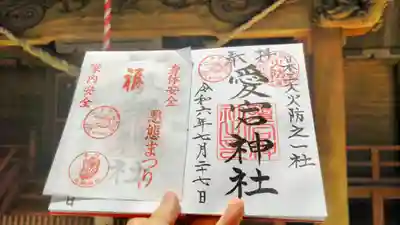 奉拝
日本三大火防之一社
愛宕神社
令和六年七月二十七日
身体安全
悪態まつり
福
家内安全